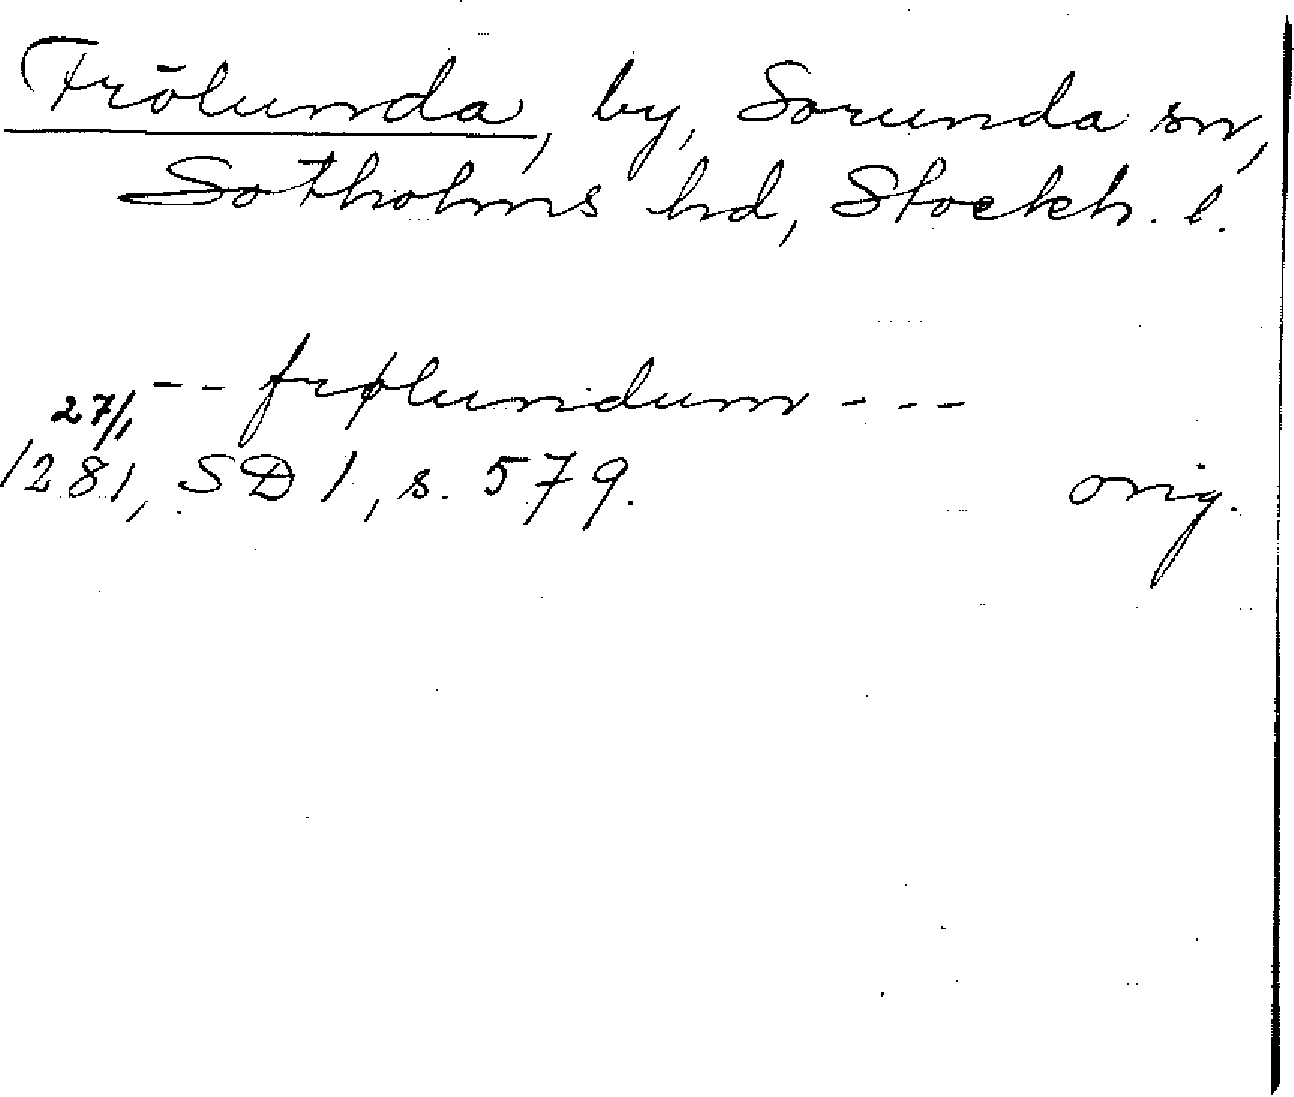 Frölunda, by, Sorunda sn,
Sotholms hd, Stockh. l.
-- frølundum ---
27/1
1281, SD 1, s. 579. orig.